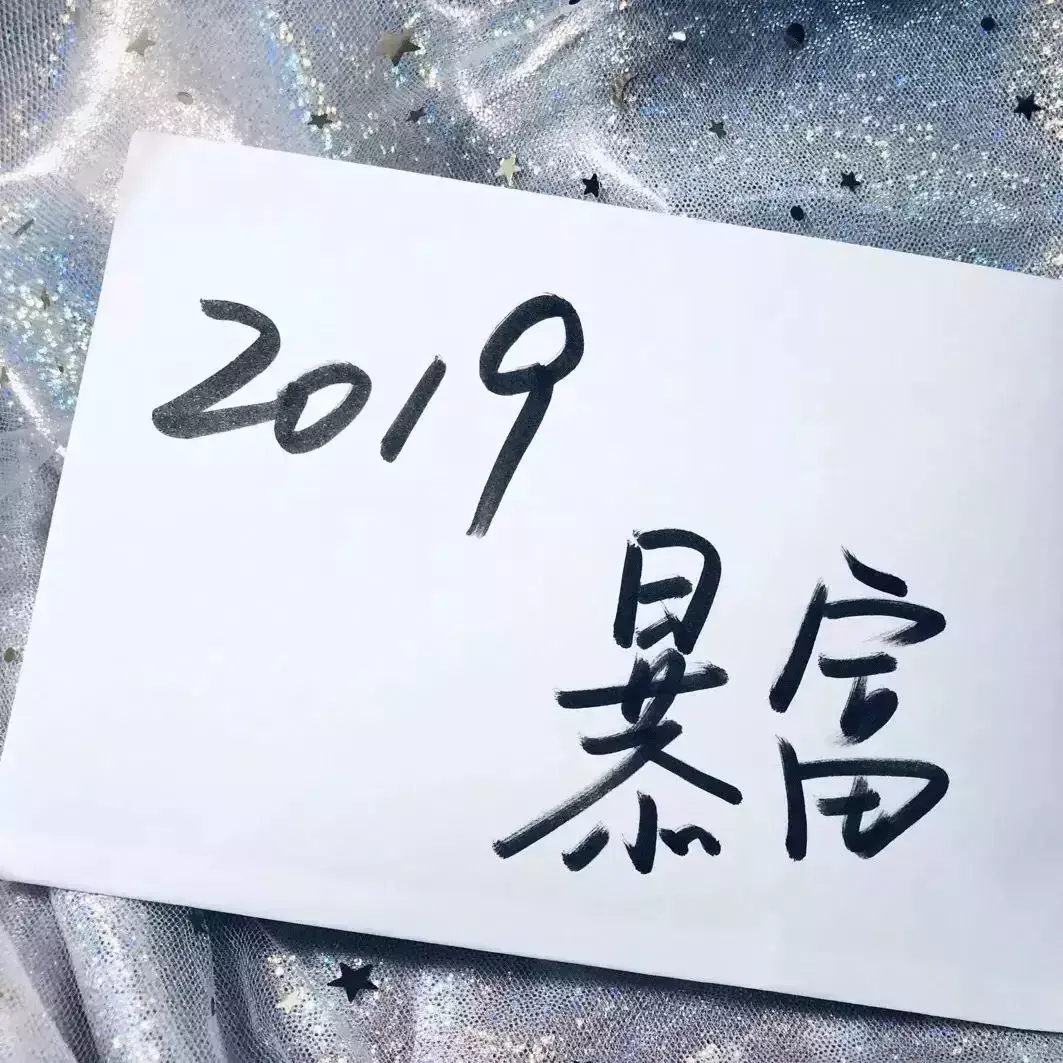 2019
暴富